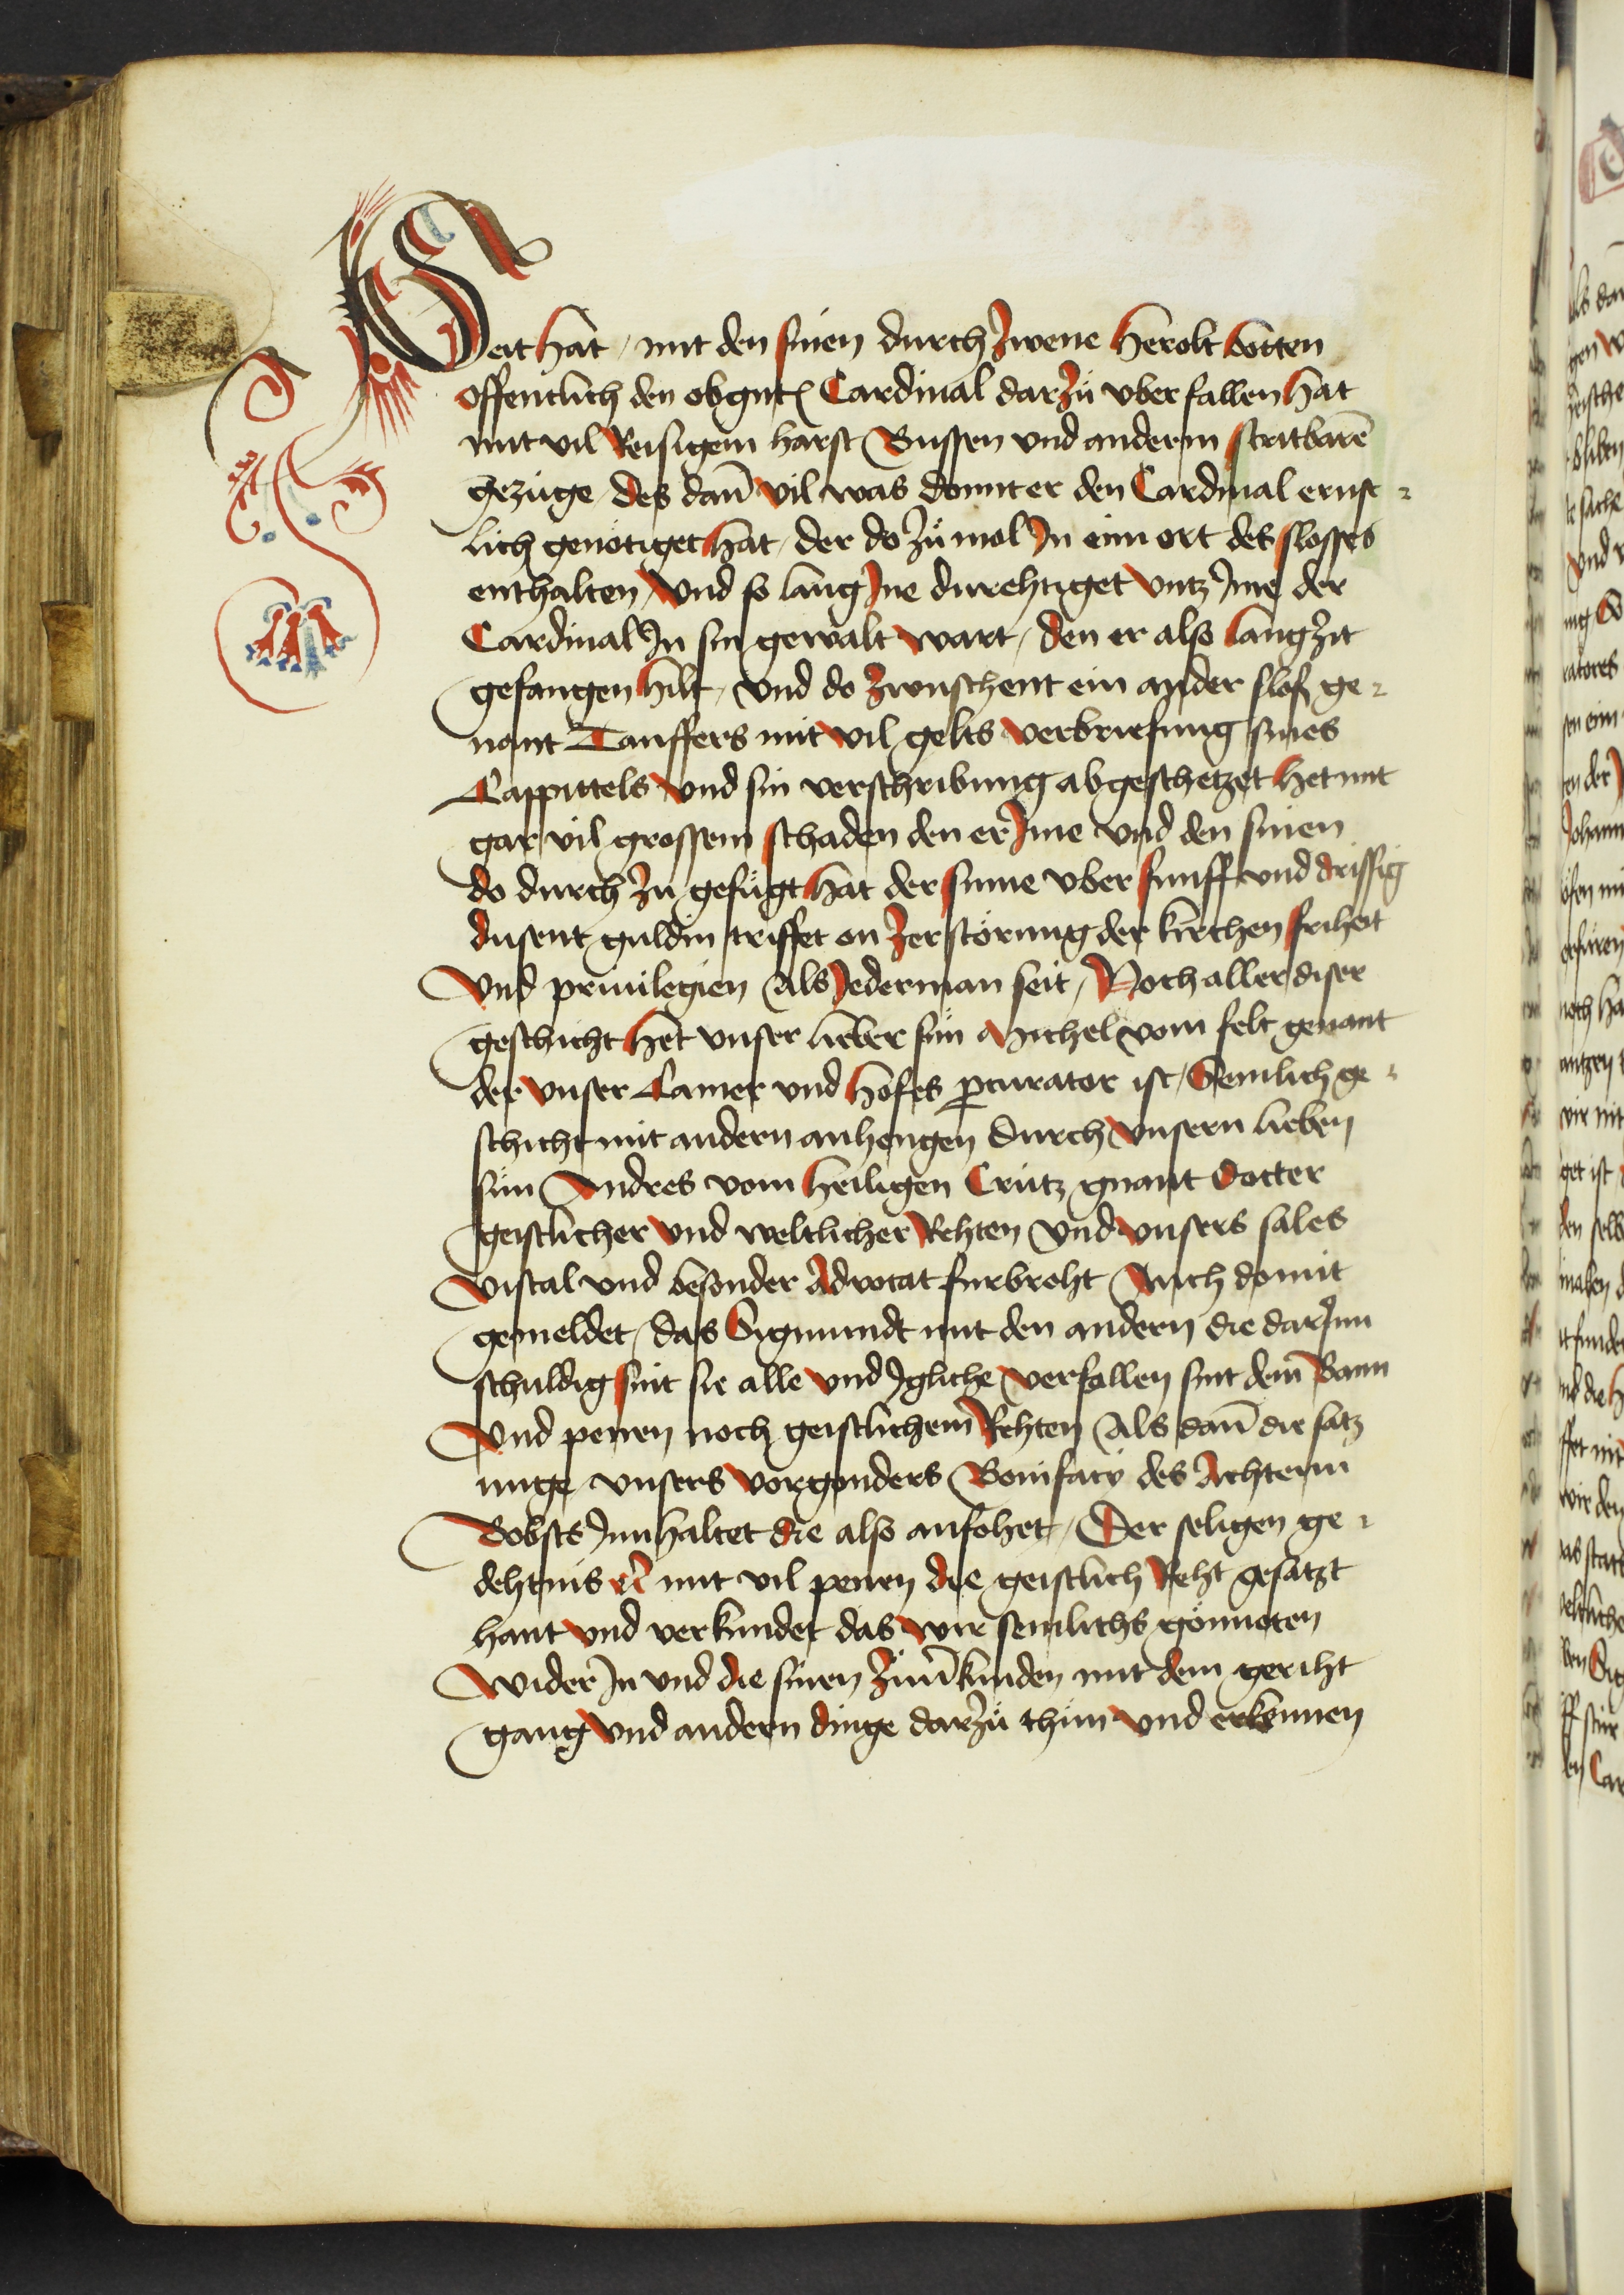 Seit hat / mit den sinen durch zwene herolt botten
offentlich den obgnt̄ Cardinal darzů vberfallen hat
mit vil Reisigem harst Bussen vnd anderm stritbarē
gezüge / des dañ vil was domit er den Cardinal ernst-
lich genötiget hat / der do zů mol Jn eim ort des slosses
enthalten / vnd so lang Jne durehtiget vntz Jme der
Cardinal Jn sin gewalt wart / den er also lang zit
gefangen hilt / vnd do zwuschent ein ander slos ge-
nant Tauffers mit vil gelts verbriefung sines
Cappittels vnd sin verschribung abgeschetzet het mit
gar vil grossem schaden den er Jme vnd den sinen
do durch zu gefügt hat der sume vber funff vnd drissig
dusent guldin triffet on zerstörung der kirchen friheit
vnd priuilegien Als Jederman seit / Noch aller diser
geschicht het vnser lieber sün Michel vom felt genant
der vnser Camer vnd hofes ꝓcurator ist / Semlich ge-
schicht mit andern anhengen durch vnsern lieben
sün Andres vom heiligen Crütz gnant Docter
geistlicher vnd weltlicher Rehten vnd vnsers sales
viscal vnd besonder Advocat furbroht Auch domit
gemeldet / das Sigmundt mit den andern die dar Jnn
schuldig sint sie alle vnd Jgliche verfallen sint dem̄ Bann
vnd penen noch geistlichem Rehten Als dañ die satz
unge vnsers vorgonders Bonifacÿ des Achtenn
Bobsts Jnnhaltet die also anfohet / Der seligen ge-
dehtnis ec̄ mit vil penen die geistlich Reht gesatzt
hant vnd verkundet das wir semlichs gönneten
wider Jn vnd die sinen zům̄ kunden mit dem geriht
gang vnd andern dinge darzů thün vnd erkennen